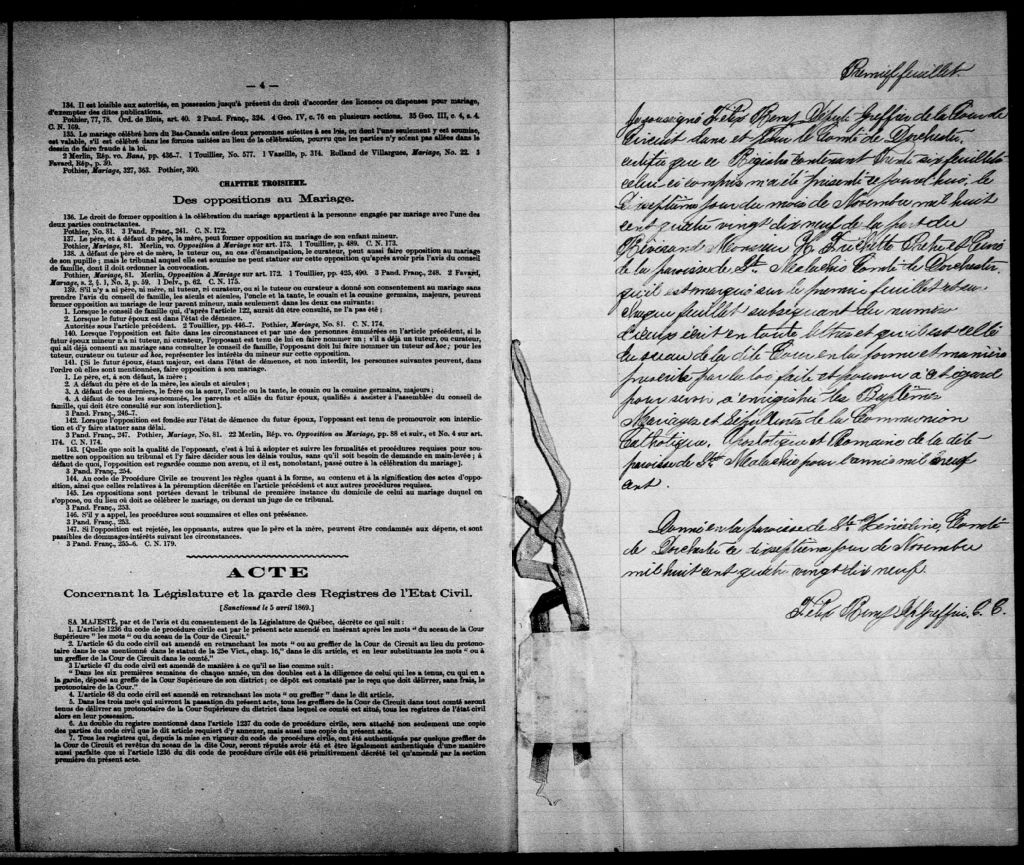 — 4 —
134. Il est loisible aux autorités, en possession jusqu'à présent du droit d'accorder des licences ou dispenses pour mariage,
d'exempter des dites publications.
Pothier, 77, 78. Ord. de Blois, art. 40. 2 Pand. Franç., 324. 4 Geo. IV, c. 76 en plusieurs sections. 35 Geo. III, c. 4, s. 4.
C. N. 169.
135. Le mariage célébré hors du Bas-Canada entre deux personnes sujettes à ses lois, ou dont l'une seulement y est soumise,
est valable, s'il est célébré dans les formes usitées au lieu de la célébration, pourvu que les parties n'y soient pas allées dans le
dessin de faire fraude à la loi.
2 Merlin, Rép. vo. Bans, pp. 436-7. 1 Touillier, No. 577. 1 Vaseille, p. 314. Rolland de Villargues, Mariage, No. 22. 3
Favard, Rép., p. 39.
Pothier, Mariage, 327, 363. Pothier, 390.
CHAPITRE TROISIEME.
Des oppositions au Mariage.
136. Le droit de former opposition à la célébration du mariage appartient à la personne engagée par mariage avec l'une des
deux parties contractantes.
Pothier, No. 81. 3 Pand. Franç., 241. C. N. 172.
137. Le père, et à défaut du père, la mère, peut former opposition au mariage de son enfant mineur.
Pothier, Mariage, 81. Merlin, vo. Opposition à Mariage sur art. 173. 1 Touillier, p. 489. C. N. 173.
138. A défaut de père et de mère, le tuteur, ou, au cas d'émancipation, le curateur, peut aussi faire opposition au mariage
de son pupille ; mais le tribunal auquel elle est soumise ne peut statuer sur cette opposition qu'après avoir pris l'avis du conseil
de famille, dont il doit ordonner la convocation.
Pothier, Mariage, 81. Merlin, Opposition à Mariage sur art. 172. 1 Touillier, pp. 425, 490. 3 Pand. Franç., 248. 2 Favard,
Mariage, s. 2, § 1, No. 3, p. 59. 1 Delv., p. 62. C. N. 175.
139. S'il n'y a ni père, ni mère, ni tuteur, ni curateur, ou si le tuteur ou curateur a donné son consentement au mariage sans
prendre l'avis du conseil de famille, les aïeuls et aïeules, l'oncle et la tante, le cousin et la cousine germains, majeurs, peuvent
former opposition au mariage de leur parent mineur, mais seulement dans les deux cas suivants:
1. Lorsque le conseil de famille qui, d'après l'article 122, aurait dû être consulté, ne l'a pas été ;
2. Lorsque le futur époux est dans l'état de démence.
Autorités sous l'article précédent. 2 Touillier, pp. 446-7. Pothier, Mariage, No. 81. C. N. 174.
140. Lorsque l'opposition est faite dans les circonstances et par une des personnes énumérées en l'article précédent, si le
futur époux mineur n'a ni tuteur, ni curateur, l'opposant est tenu de lui en faire nommer un ; s'il a déjà un tuteur, ou curateur,
qui ait déjà consenti au mariage sans consulter le conseil de famille, l'opposant doit lui faire nommer un tuteur ad hoc ; pour les
tuteur, curateur ou tuteur ad hoc, représenter les intérêts du mineur sur cette opposition.
141. [Si le futur époux, étant majeur, est dans l'état de démence, et non interdit, les personnes suivantes peuvent, dans
l'ordre où elles sont mentionnées, faire opposition à son mariage.
1. Le père, et, à son défaut, la mère ;
2. A défaut du père et de la mère, les aïeuls et aïeules ;
3. A défaut de ces derniers, le frère ou la sœur, l'oncle ou la tante, le cousin ou la cousine germains, majeurs ;
4. A défaut de tous les sus-nommés, les parents et alliés du futur époux, qualifiés à assister à l'assemblée du conseil
de famille, qui doit être consulté sur son interdiction].
3 Pand. Franç., 246-7.
142. Lorsque l'opposition est fondée sur l'état de démence du futur époux, l'opposant est tenu de promouvoir son interdic-
tion et d'y faire statuer sans délai.
3 Pand. Franç., 247. Pothier, Mariage, No. 81. 22 Merlin, Rép. vo. Opposition au Mariage, pp. 88 et suiv., et No. 4 sur art.
174. C. N. 174.
143. [Quelque que soit la qualité de l'opposant, c'est à lui à adopter et suivre les formalités et procédures requises pour sou-
mettre son opposition au tribunal et l'y faire décider sous les délais voulus, sans qu'il soit besoin de demande en main-levée ; à
défaut de quoi, l'opposition est regardée comme non avenu, et il est, nonobstant, passé outre à la célébration du mariage].
3 Pand. Franç., 254.
144. Au code de Procédure Civile se trouvent les règles quant à la forme, au contenu et à la signification des actes d'oppo-
sition, ainsi que celles relatives à la péremption décrétée en l'article précédent et aux autres procédures requises.
145. Les oppositions sont portées devant le tribunal de première instance du domicile de celui au mariage duquel on
s'oppose, ou du lieu où doit se célébrer le mariage, ou devant un juge de ce tribunal.
3 Pand. Franç., 253.
146. S'il y a appel, les procédures sont sommaires et elles ont préséance.
3 Pand. Franç., 253.
147. Si l'opposition est rejetée, les opposants, autres que le père et la mère, peuvent être condamnés aux dépens, et sont
passibles de dommages-intérêts suivant les circonstances.
3 Pand. Franç., 255-6. C. N. 179.
ACTE
Concernant la Législature et la garde des Registres de l'Etat Civil.
[Sanctionné le 5 avril 1869.]
SA MAJESTÉ, par et de l'avis et du consentement de la Législature de Québec, décrète ce qui suit :
1. L'article 1236 du code de procédure civile est par le présent acte amendé en insérant après les mots " du sceau de la Cour
Supérieure " les mots " ou du sceau de la Cour de Circuit."
2. L'article 45 du code civil est amendé en retranchant les mots " ou au greffier de la Cour de Circuit au lieu du protono-
taire dans le cas mentionné dans le statut de la 25e Vict., chap. 16," dans le dit article, et en leur substituant les mots " ou à
un greffier de la Cour de Circuit dans le comté."
3 L'article 47 du code civil est amendé de manière à ce qu'il se lise comme suit :
" Dans les six premières semaines de chaque année, un des doubles est à la diligence de celui qui les a tenus, cu qui en a
la garde, déposé au greffe de la Cour Supérieure de son district ; ce dépôt est constaté par le reçu que doit délivrer, sans frais, le
protonotaire de la Cour."
4. L'article 48 du code civil est amendé en retranchant les mots " ou greffier " dans le dit article.
5. Dans les trois mois qui suivront la passation du présent acte, tous les greffiers de la Cour de Circuit dans tout comté seront
tenus de délivrer au protonotaire de la Cour Supérieure du district dans lequel ce comté est situé, tous les registres de l'état civil
alors en leur possession.
6. Au double du registre mentionné dans l'article 1237 du code de procédure civile, sera attaché non seulement une copie
des parties du code civil que le dit article requiert d'y annexer, mais aussi une copie du présent acte.
7. Tous les registres qui, depuis la mise en vigueur du code de procédure civile, ont été authentiqués par quelque greffier de
la Cour de Circuit et revêtus du sceau de la dite Cour, seront réputés avoir été et être légalement authentiqués d'une manière
aussi parfaite que si l'article 1236 du dit code de procédure civile eût été primitivement décrété tel qu'amendé par la section
première du présent acte.
Premier feuillet.
Je soussigné Félix Député Greffier de la Cour de
Circuit dans et pour le Comté de Dorchester,
certifie que ce Registre contenant trente six feuillets
celui-ci compris m'a été présenté ce jourd'hui, le
dixseptième jour du mois de Novembre mil huit
cent quatre vingt dix neuf de la part du
Révérend Monsieur Ptre et Curé
de la paroisse de St. Malachie Comté de Dorchester,
qu'il est marqué sur le premier feuillet et sur
chaque feuillet subséquent du numéro
écrit en toute lettres et qu'il est scellé
du sceau de la dite Cour en la forme et manière
prescrite par la loi faite et pourvu à cet égard
pour servir à enregistrer les Baptêmes
Mariages et Sépultures de la Communion
Catholique, Apostolique et Romaine de la dite
paroisse de St. Malachie pour l'année mil neuf
cent.
Donné en la paroisse de Ste Hénédine, Comté
de Dorchester ce dixseptième jour de Novembre
mil huit cent quatre vingt dix neuf.
Félix Greffier C. C.